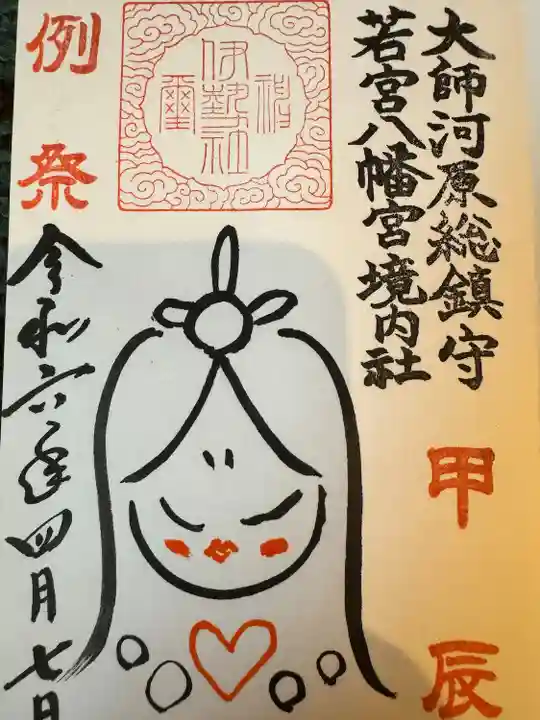 大師河原総鎮守
若宮八幡宮境内社
甲辰
伊勢社
神璽
例祭
令和六年四月七日